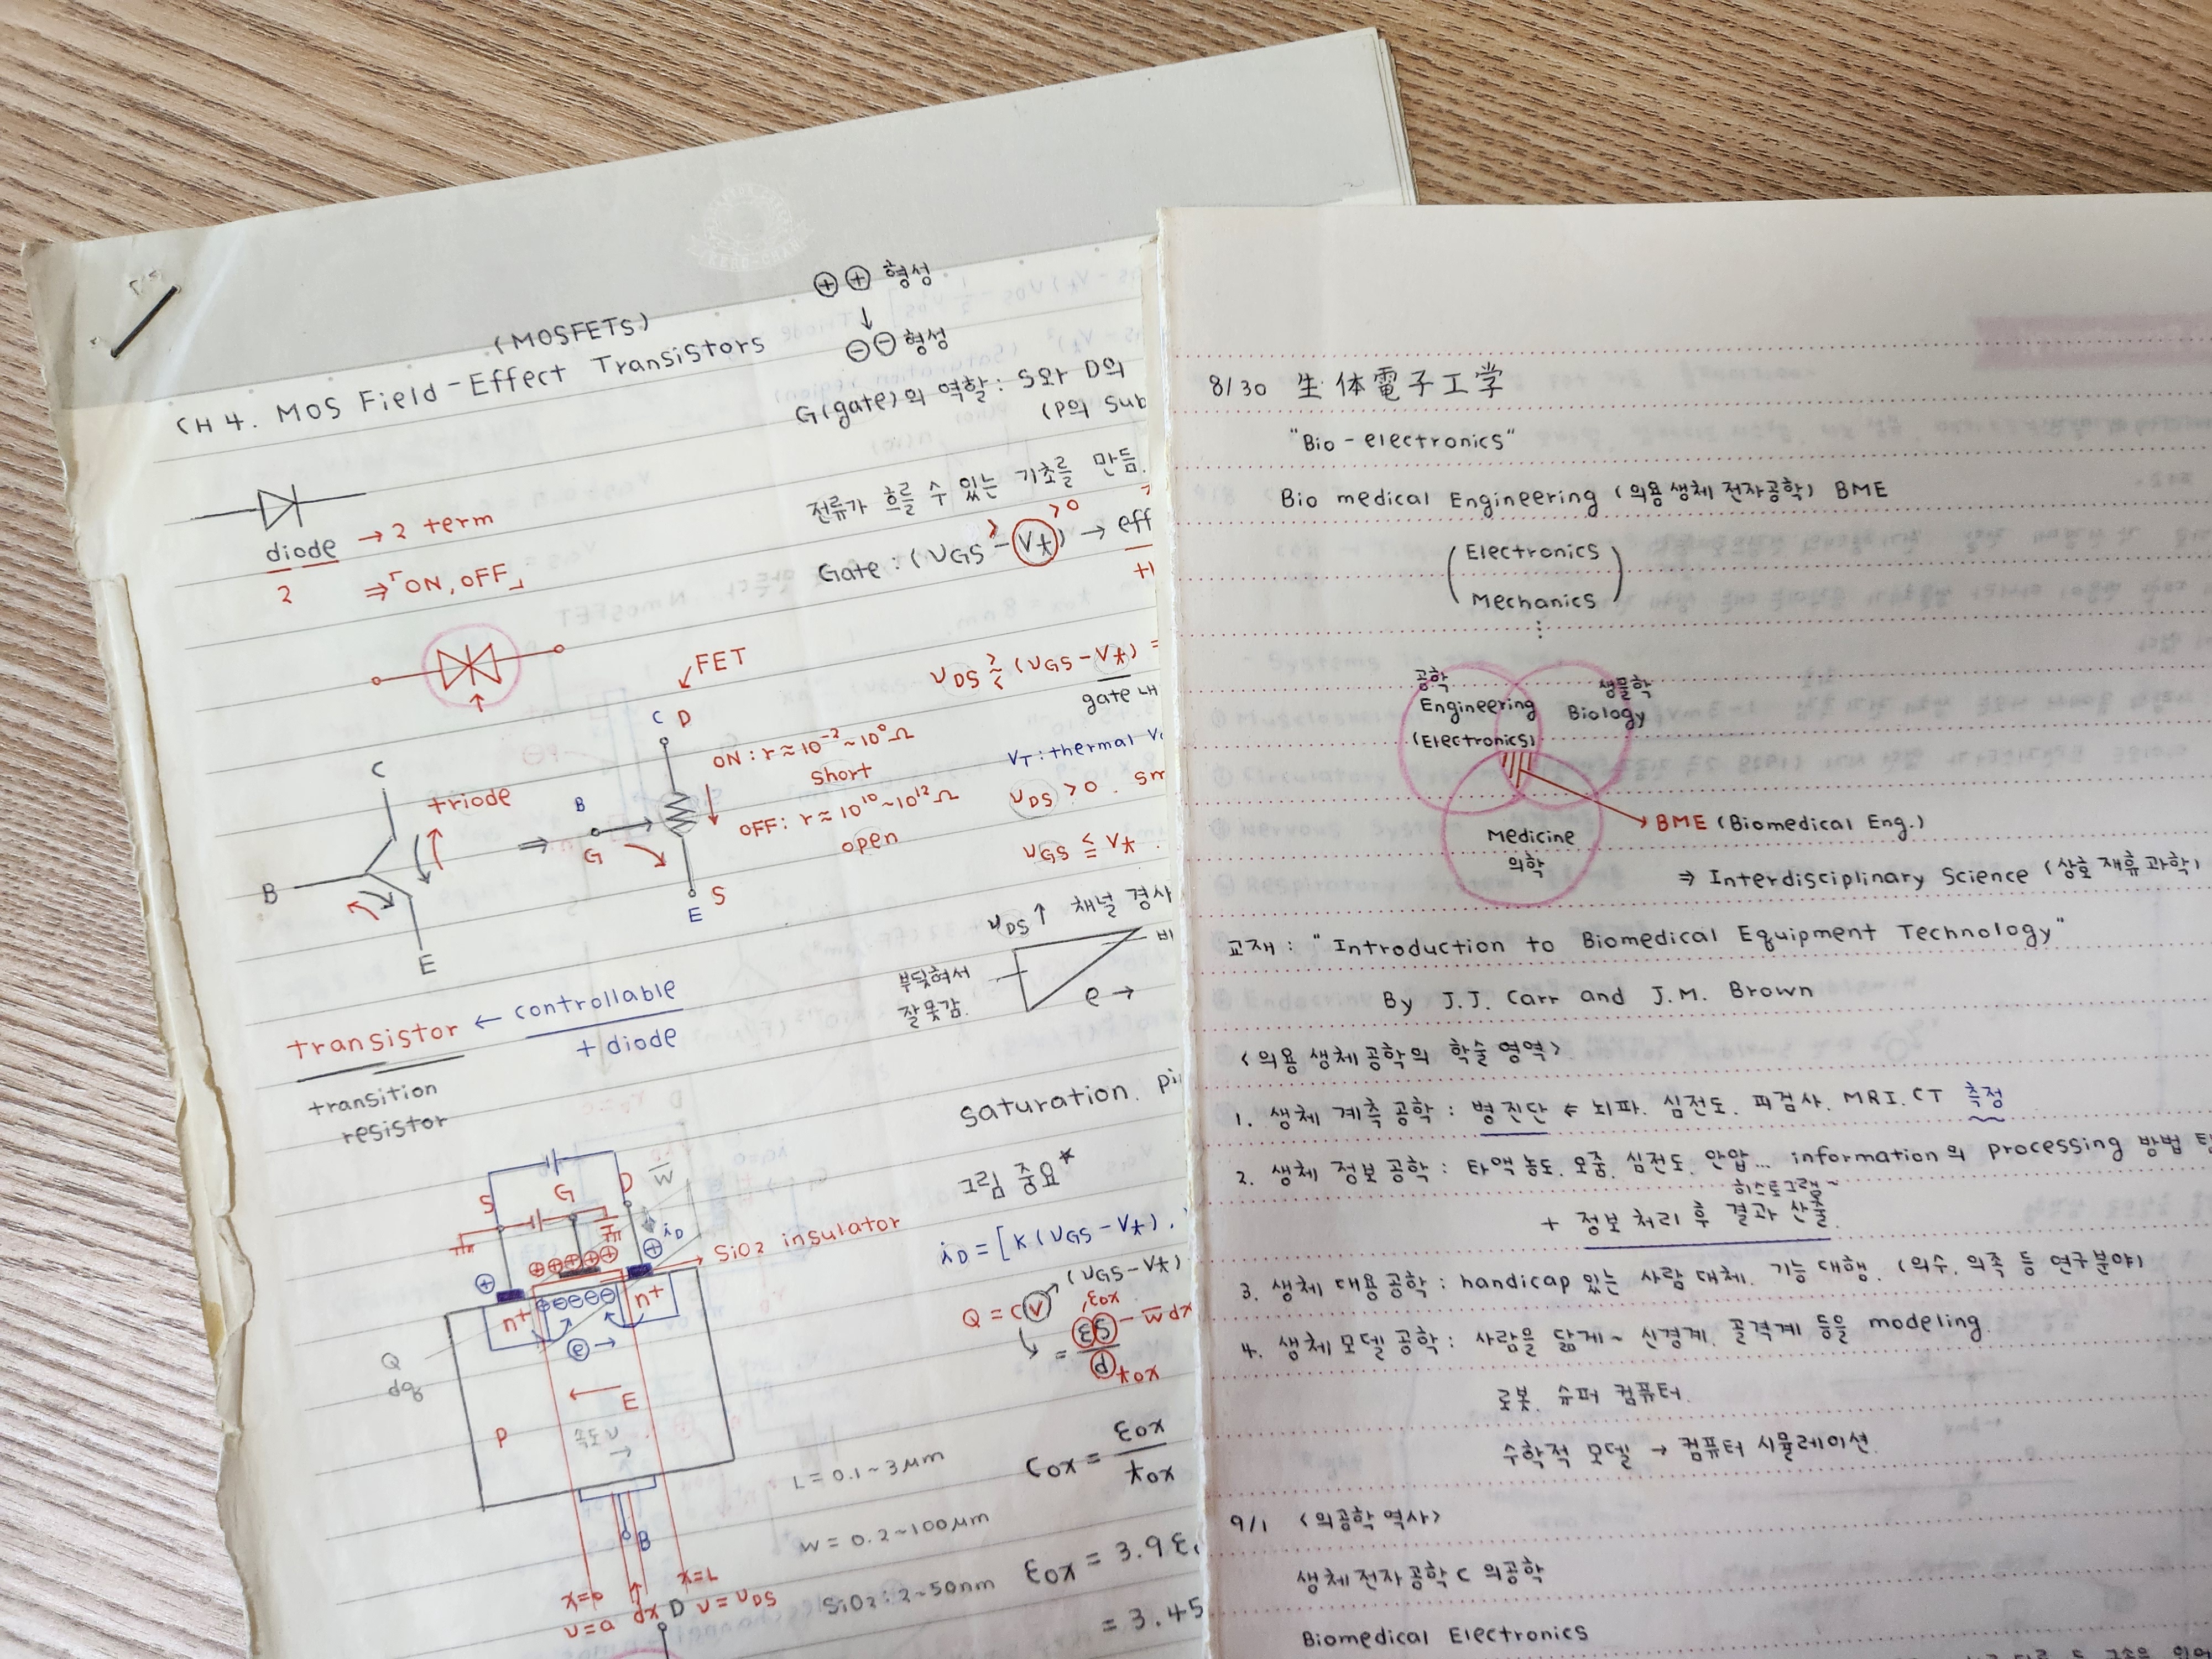 (MOSFETS)
CH 4. MOS Field-Effect Transistors
diode → 2 term
2 ⇒「ON, OFF」
FET
C D
ON : r ≈ 10⁻² ~ 10⁰ Ω
short
OFF : r ≈ 10¹⁰ ~ 10¹² Ω
open
B
G
S
E
C
triode
B
E
transistor ← controllable
+ diode
transition
resistor
S
G
D
W
iD
SiO2 insulator
n+
n+
e →
Q
dq
E
P
속도 υ
B
x=L
υ=a dx D υ=υDS
L = 0.1 ~ 3μm
W = 0.2 ~ 100μm
SiO2 : 2 ~ 50nm
⊕⊕ 형성
↓
⊖⊖ 형성
G(gate)의 역할 : S와 D의
(P의 sub
전류가 흐를 수 있는 기초를 만듬.
> > 0
Gate : (υGS - Vt) → eff
υDS ≷ (υGS - Vt) =
gate 내
VT : thermal
υDS > 0 . sm
υGS ≤ Vt .
υDS ↑ 채널 경사
부딪혀서
잘못감.
e →
saturation.
그림 중요*
iD = [K(υGS - Vt) .
(υGS - Vt)
Q = CV
εox
= εS - w dx
d tox
Cox = εox
tox
εox = 3.9
= 3.45
8/30 生体電子工学
"Bio-electronics"
Bio medical Engineering (의용생체전자공학) BME
(Electronics
Mechanics)
⋮
공학
Engineering
(Electronics)
생물학
Biology
Medicine
의학
BME (Biomedical Eng.)
⇒ Interdisciplinary Science (상호 재휴 과학)
교재 : "Introduction to Biomedical Equipment Technology"
By J.J. Carr and J.M. Brown
<의용 생체공학의 학술 영역>
1. 생체 계측 공학 : 병 진단 ← 뇌파. 심전도. 피검사. MRI. CT 측정
2. 생체 정보 공학 : 타액 농도. 오줌. 심전도. 안압... information의 processing 방법
히스토그램~
+ 정보 처리 후 결과 산출.
3. 생체 대용공학 : handicap 있는 사람 대체. 기능 대행. (의수. 의족 등 연구분야)
4. 생체 모델 공학 : 사람을 닮게~ 신경계. 골격계 등을 modeling.
로봇. 슈퍼 컴퓨터.
수학적 모델 → 컴퓨터 시뮬레이션.
9/1 <의공학 역사>
생체전자공학 ⊂ 의공학
Biomedical Electronics